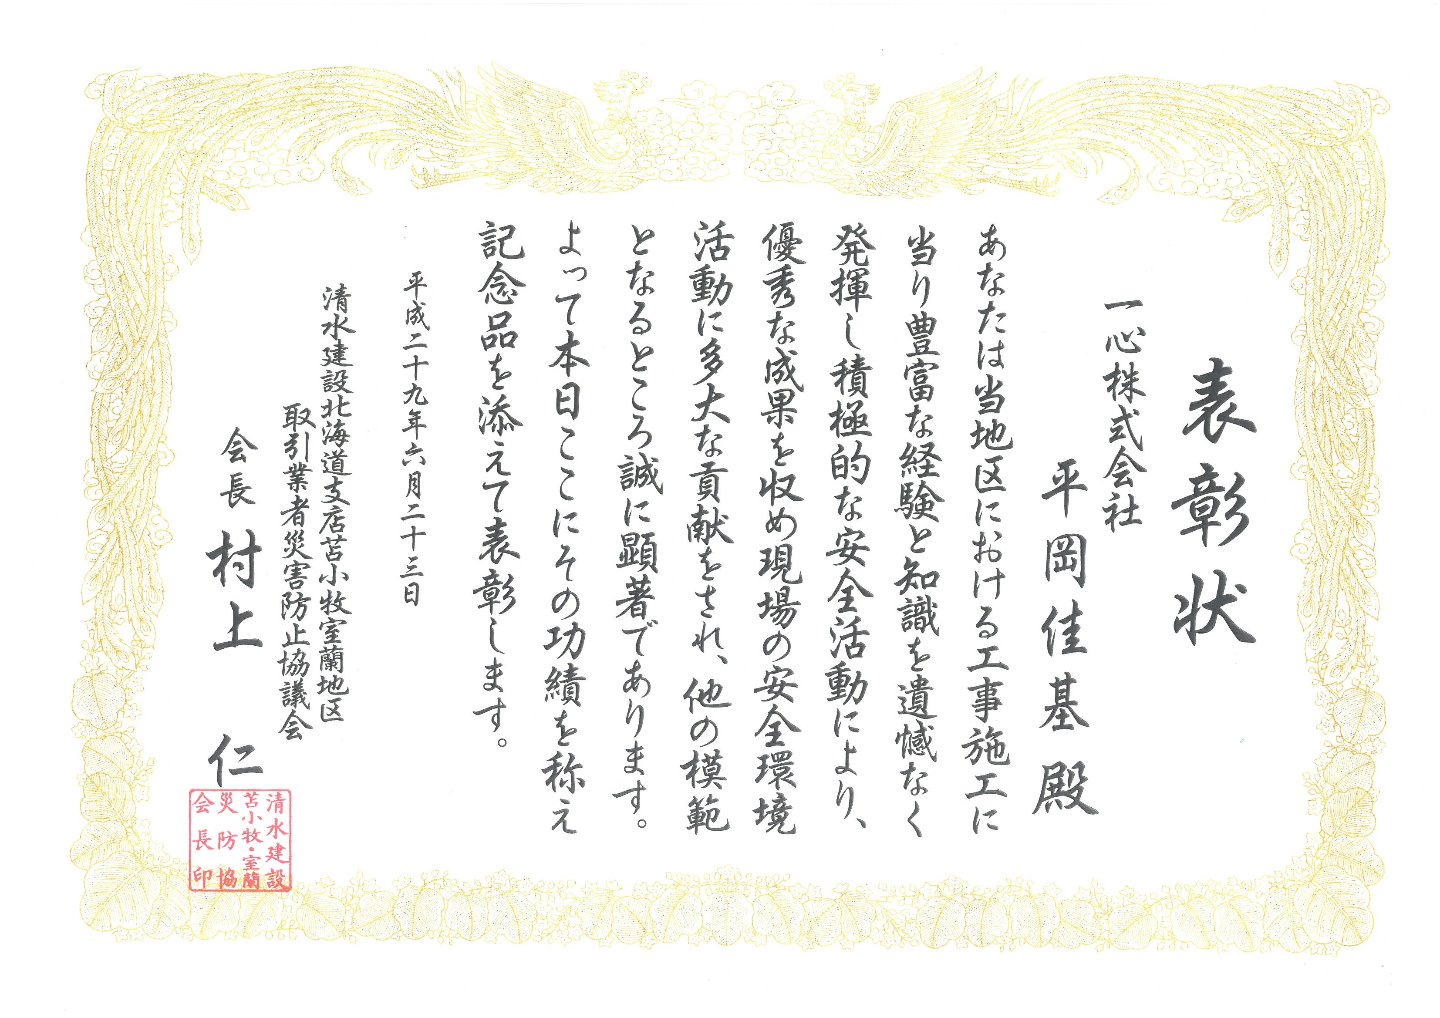 表彰状
一心株式会社
平岡佳基殿
あなたは当地区における工事施工に
当り豊富な経験と知識を遺憾なく
発揮し積極的な安全活動により、
優秀な成果を収め現場の安全環境
活動に多大な貢献をされ、他の模範
となるところ誠に顕著であります。
よって本日ここにその功績を称え
記念品を添えて表彰します。
平成二十九年六月二十三日
清水建設北海道支店苫小牧室蘭地区
取引業者災害防止協議会
会長 村上 仁
清水建設
苫小牧・室蘭
災防協
会長印